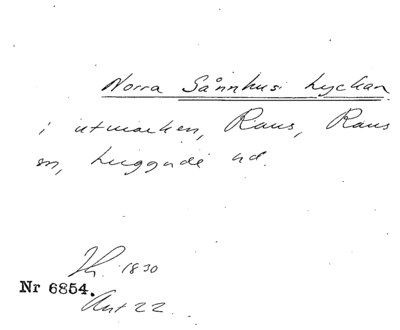 Norra Sånnhusi Lyckan
i utmarken, Raus, Raus
sn, huggande ud.
Th. 1830
Nr 6854.
Akt 22.